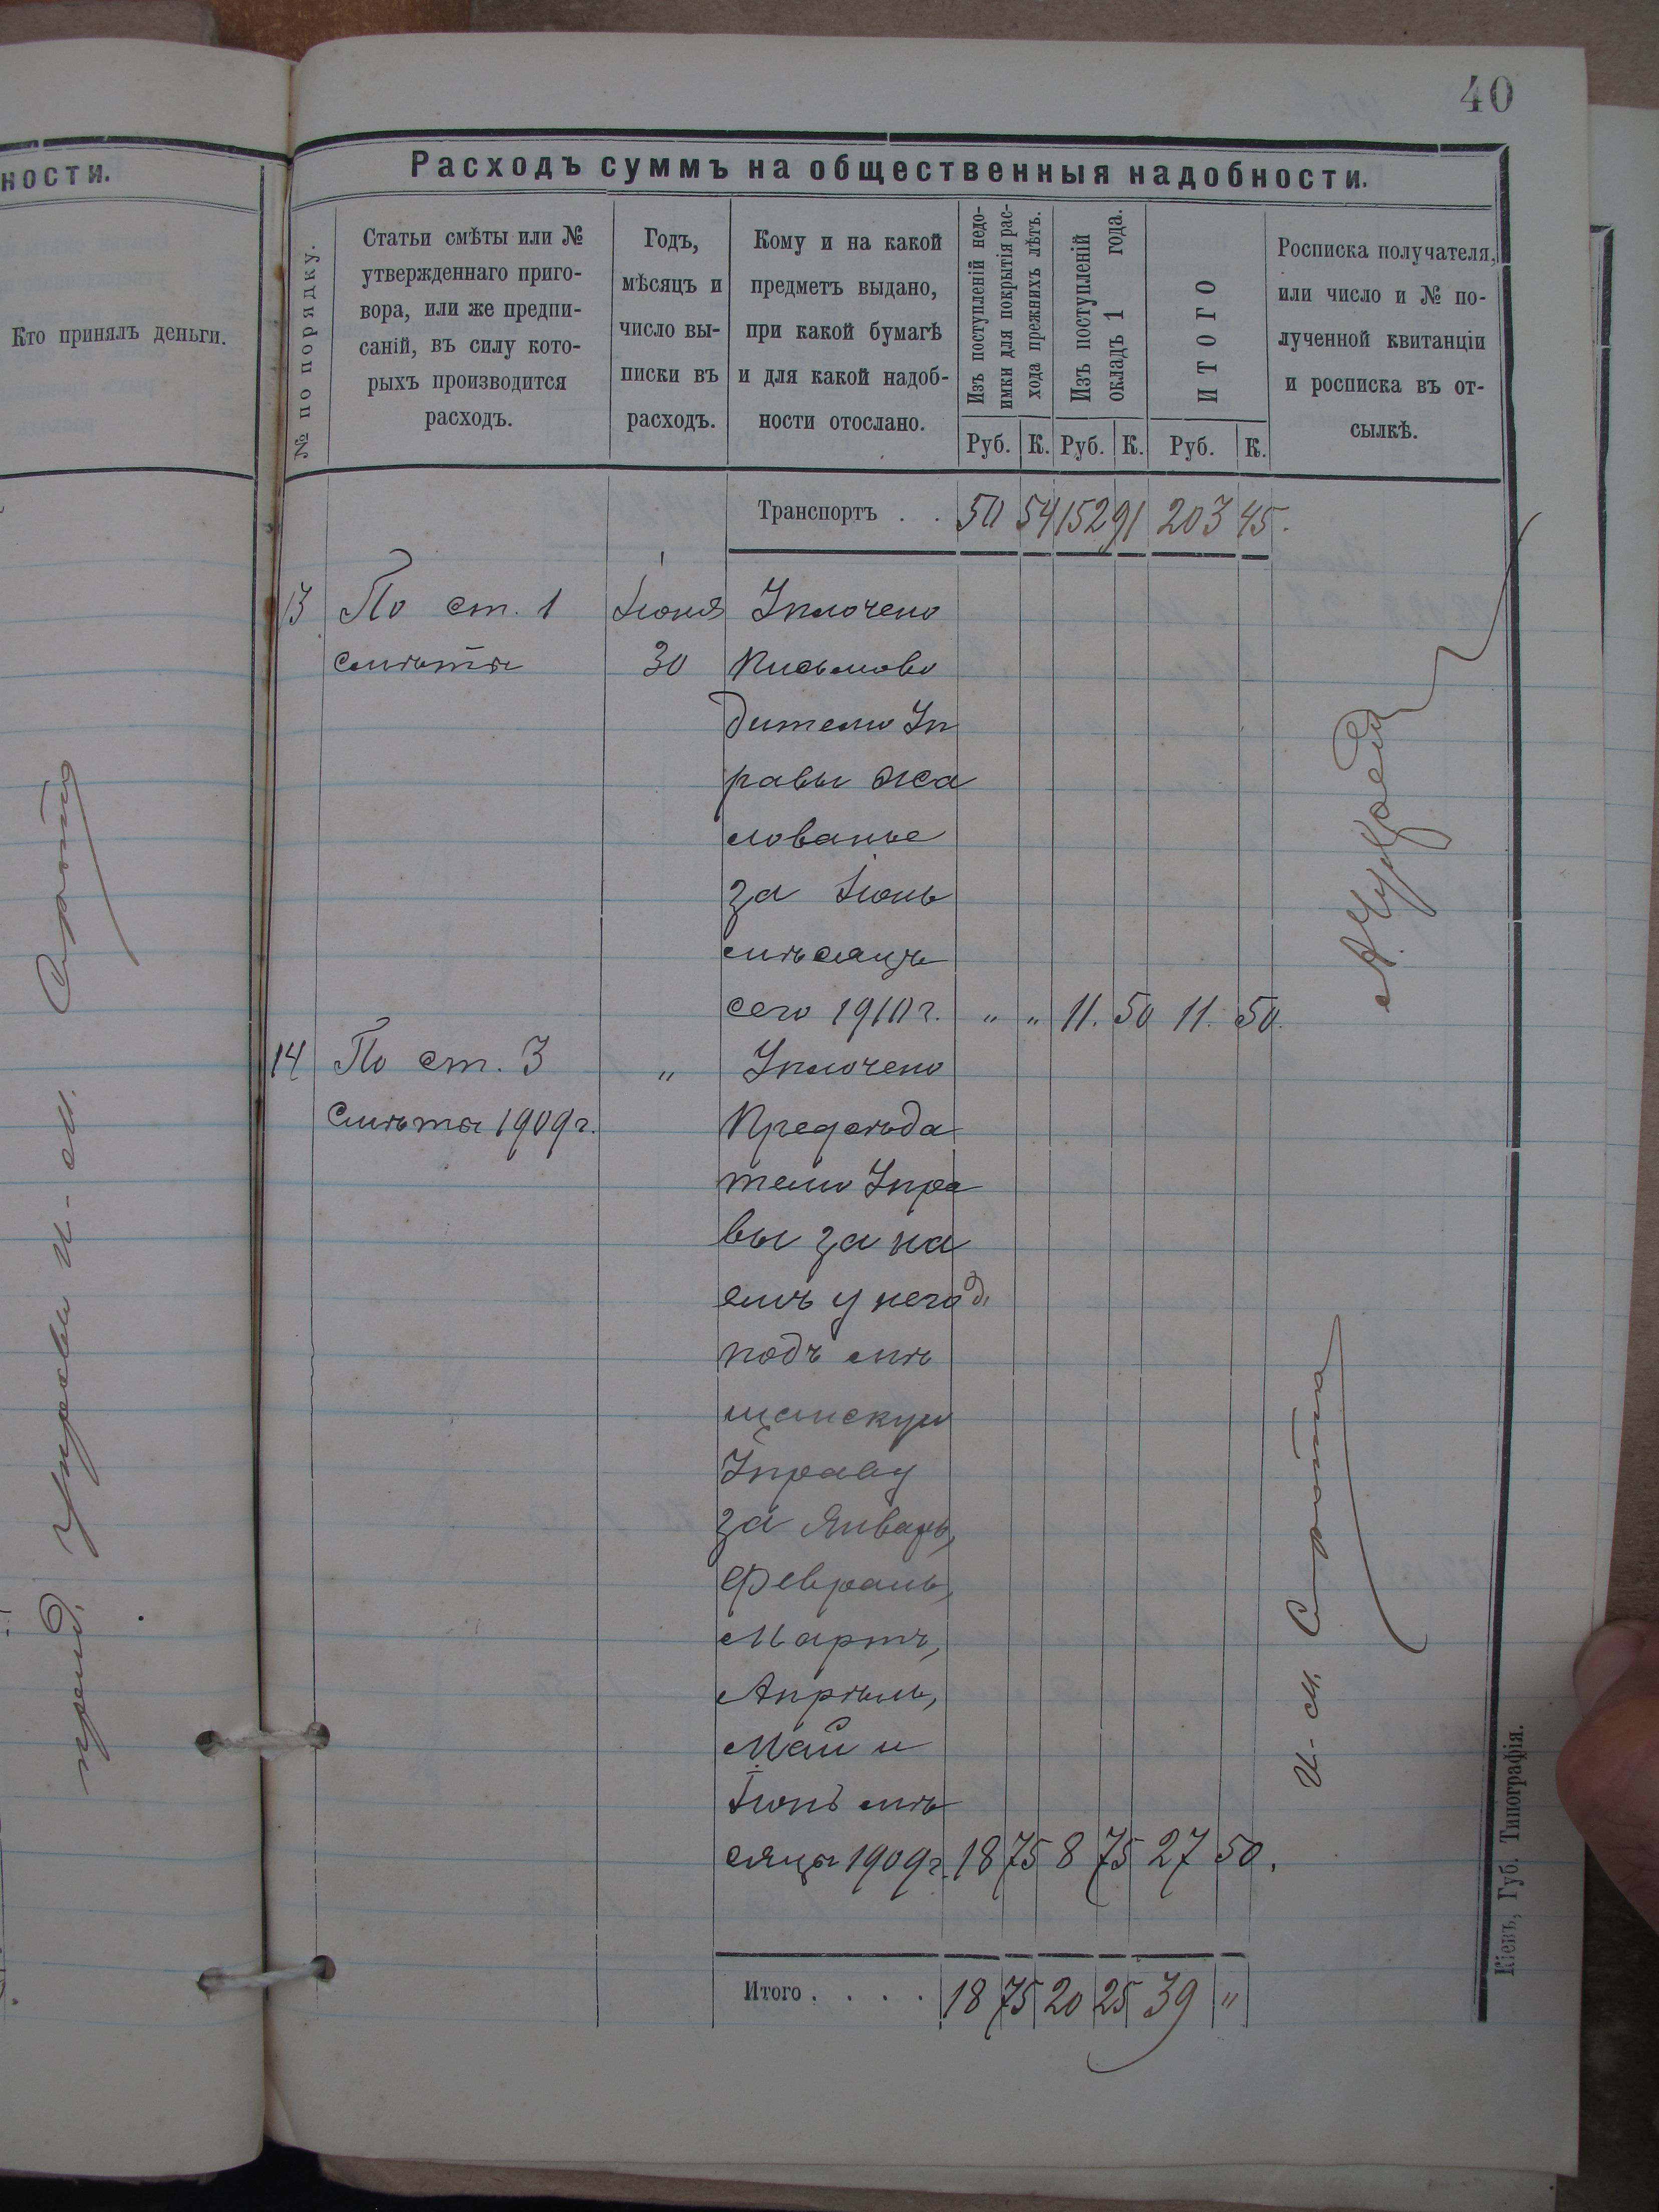 40
ности.
Кто принялъ деньги.
Расходъ суммъ на общественныя надобности.
№ по порядку.
Статьи смѣты или №
утвержденнаго приго-
вора, или же предпи-
саній, въ силу кото-
рыхъ производится
расходъ.
Годъ,
мѣсяцъ и
число вы-
писки въ
расходъ.
Кому и на какой
предметъ выдано,
при какой бумагѣ
и для какой надоб-
ности отослано.
Изъ поступленій недо-
имки для покрытія рас-
хода прежнихъ лѣтъ.
Изъ поступленій
окладъ 1 года.
ИТОГО
Росписка получателя,
или число и № по-
лученной квитанціи
и росписка въ от-
сылкѣ.
Руб. К. Руб. К. Руб. К.
Транспортъ . . 50 54 152 91 203 45.
13 По ст. 1 Іюня Уплочено
смѣты 30 Письмово
дителю Уп
равы жа
лованье
за Іюнь
мѣсяцъ
сего 1910 г. " " 11. 50 11. 50.
14 По ст. 3 " Уплочено
Смѣты 1909 г. Предсѣда
телю Упра
вы за на
емъ у него д.
подъ мѣ
щанскую
Управу
за Январь,
Февраль,
Мартъ,
Апрѣль,
Май и
Іюнь мѣ
сяцы 1909 г. 18 75 8 75 27 50.
Итого . . . . 18 75 20 25 39 "
И-М. Сирота
пред. Управы И-М. Сирота
Кіевъ, Губ. Типографія.